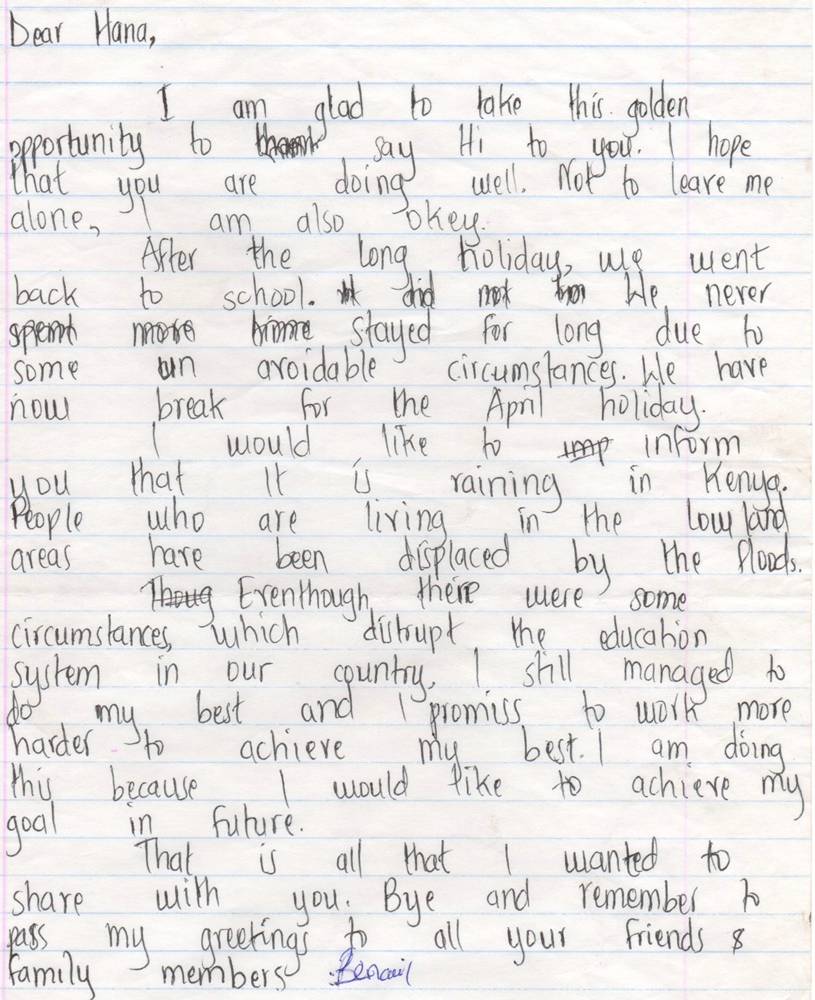 Dear Hana,
I am glad to take this golden
opportunity to say Hi to you. I hope
that you are doing well. Not to leave me
alone, I am also okey.
After the long holiday, we went
back to school. It did not We never
spent more time stayed for long due to
some un avoidable circumstances. We have
now break for the April holiday.
I would like to imp inform
you that it is raining in Kenya.
People who are living in the low land
areas have been displaced by the floods.
Thoug Eventhough there were some
circumstances, which distrupt the education
system in our country, I still managed to
do my best and I promiss to work more
harder to achieve my best. I am doing
this because I would like to achieve my
goal in future.
That is all that I wanted to
share with you. Bye and remember to
pass my greetings to all your friends &
family members